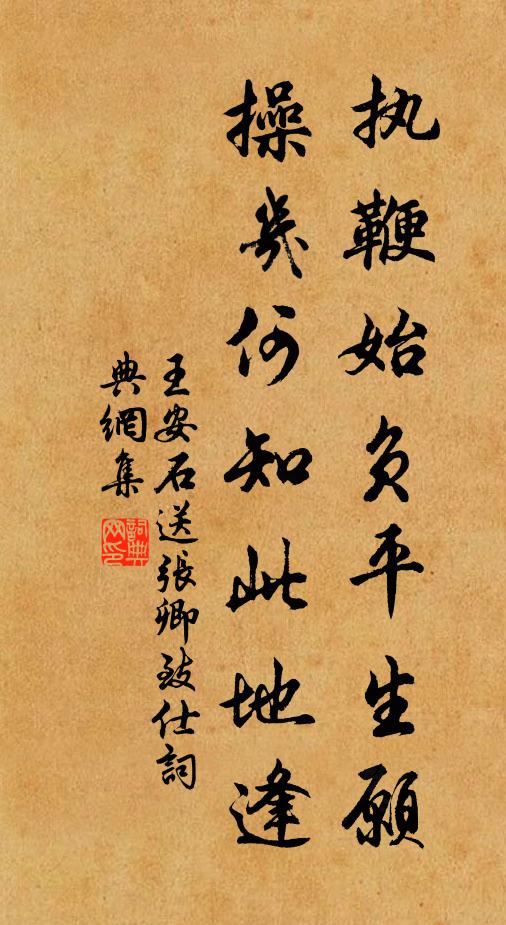 执鞭始负平生愿
操几何知此地逢
王安石送張卿致仕詞
典網集
詞典网印